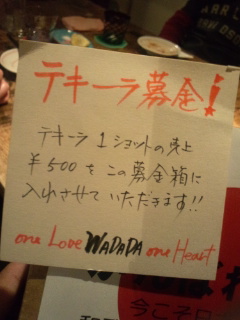 テキーラ募金！
テキーラ1ショットの売上
¥500をこの募金箱に
入れさせていただきます!!
one Love WADADA one Heart
今こそ